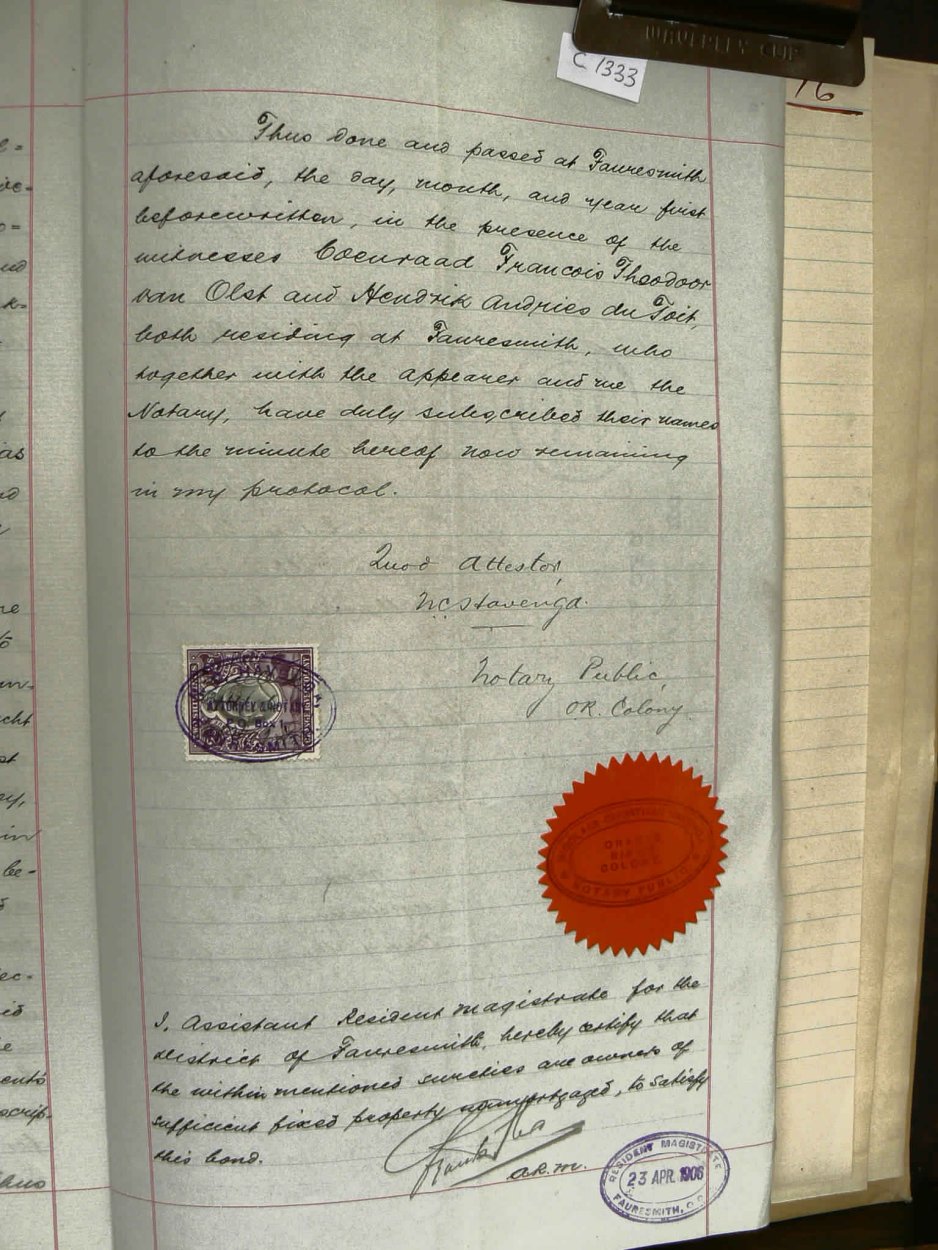 WAVERLEY CLIP
C 1333
76
Thus done and passed at Fauresmith
aforesaid, the day, month, and year first
beforewritten, in the presence of the
witnesses Coenraad Francois Theodoor
van Olst and Hendrik Andries du Toit,
both residing at Fauresmith, who
together with the appearer and me the
Notary, have duly subscribed their names
to the minute hereof now remaining
in my protocol.
Quod Attestor,
N.C. Havenga.
Notary Public,
OR. Colony
ATTORNEY & NOTARY
P.O. Box 1
FAURESMITH
ORANGE
RIVER
COLONY
NOTARY PUBLIC
I, Assistant Resident Magistrate for the
district of Fauresmith, hereby certify that
the within mentioned sureties are owners of
sufficient fixed property unmortgaged, to satisfy
this bond.
A.R.M.
RESIDENT MAGISTRATE
23 APR. 1906
FAURESMITH, O.R.C.